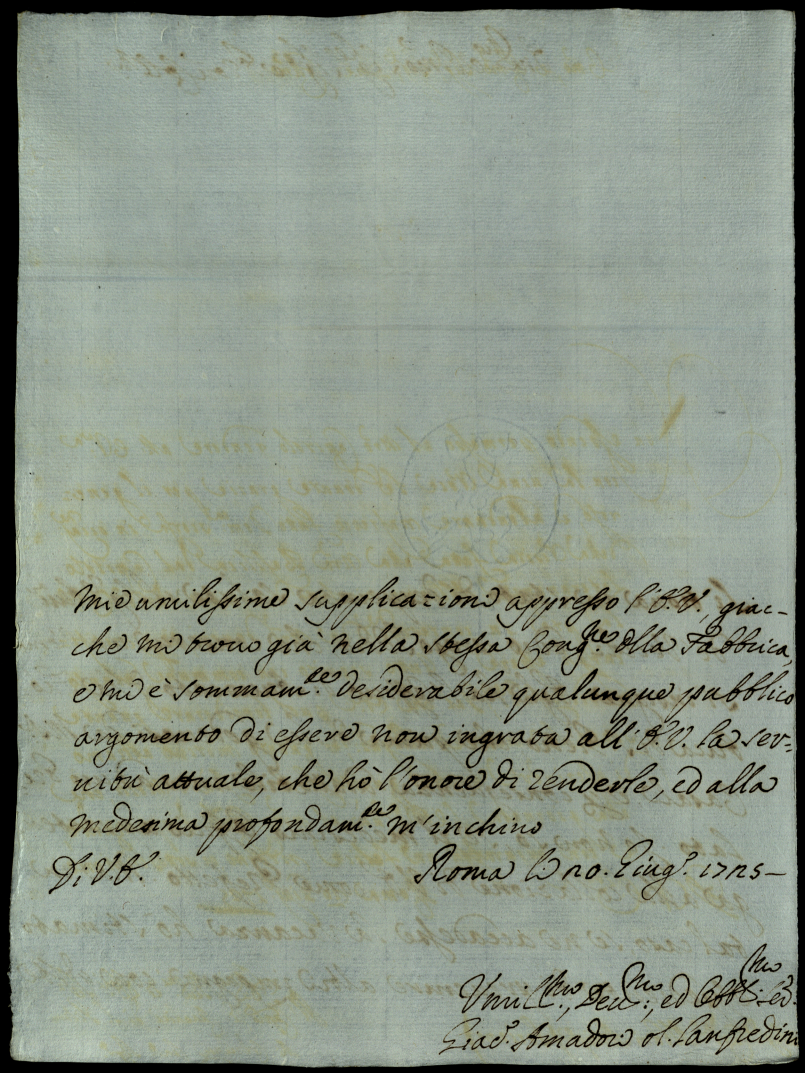 mie umilissime supplicazioni appresso l'E.V., giac-
che mi trovo già nella stessa Cong.ne dlla Fabbrica,
e mi è sommam.te desiderabile qualunque pubblico
argomento di essere non ingrata all'E.V. la ser-
vitù attuale, che hò l'onore di renderle, ed alla
medesima profondam.te m'inchino
Di V.E. Roma li 20. Giug.o 1725-
Umill.mo, Dev.mo, ed Obbl.mo
Giac.o Amadore Lanfredini